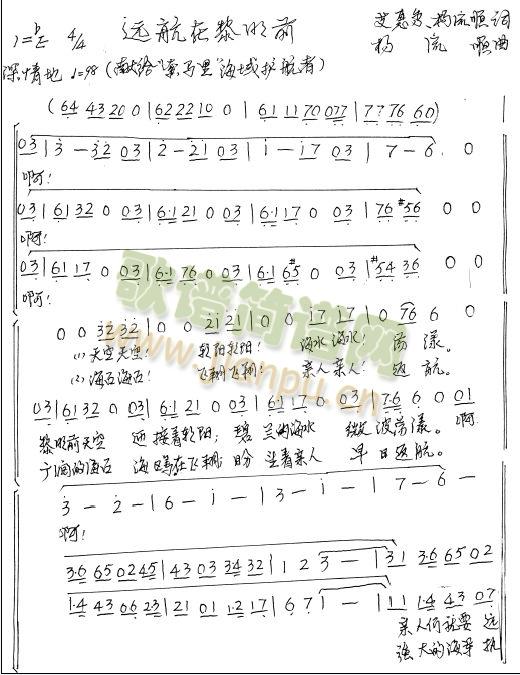 1=bE 4/4 远航在黎明前 词
杨流顺曲
深情地 ♩=98 (献给"索马里"海域护航者)
(64 4320 0 | 622210 0 | 61 1170 077 | 7776 60)
03 | 3 - 32 03 | 2 - 21 03 | i - i7 03 | 7 - 6 . 0
啊!
03 | 6132 0 03 | 6·121 0 03 | 6·117 0 03 | 76 #56 0 0
啊!
03 | 6117 0 03 | 6·176 0 03 | 6·16#5 0 03 | #54 36 0 0
啊!
歌谱简谱网
www.jianpu.cn
0 0 3232 | 0 0 2121 | 0 0 1717 | 0 76 6 0
(1) 天空天空! 朝阳朝阳! 海水海水! 荡漾。
(2) 海石海石! 飞翱飞翱! 亲人亲人! 返航。
03 | 6132 0 03 | 6·121 0 03 | 6·117 0 03 | 7·6 6 0 01
黎明前天空 迎接着朝阳; 碧兰的海水 微波荡漾。 啊
海鸥在飞翱; 盼望着亲人 早日返航。
3 - 2 - | 6 - i - | 3 - i - | 7 - 6 -
啊!
3·6 650245 | 43 03 34 32 | 1 2 3 - | 31 3·6 6502
1·4 430623 | 21 01 1·2 17 | 6 7 1 - | 11 1·4 4307
亲人们就要 远
强大的海军 执